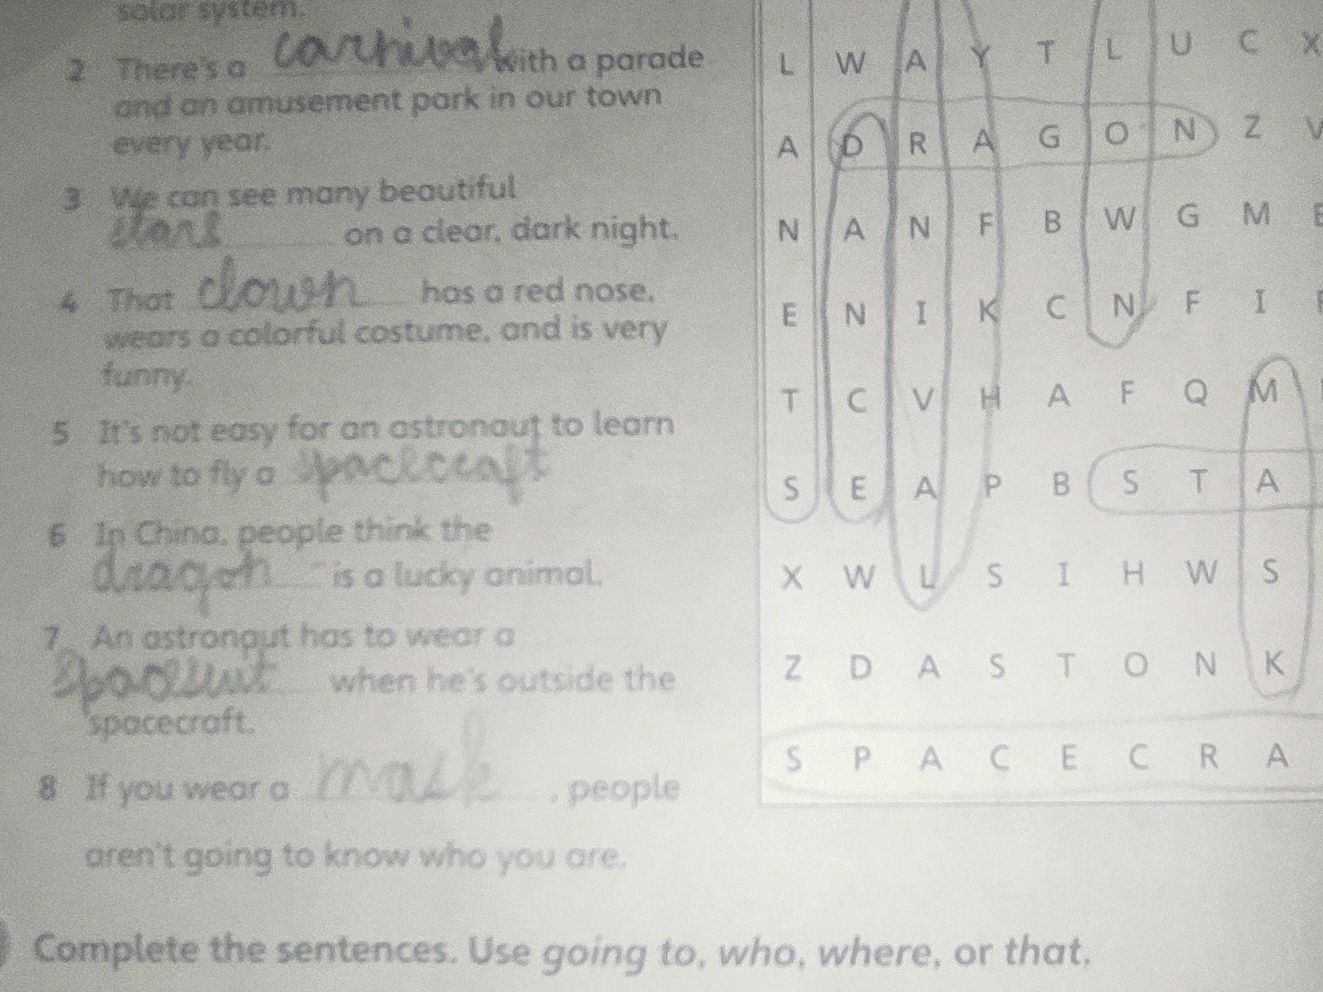 solar system.
2 There's a carnival with a parade
and an amusement park in our town
every year.
3 We can see many beautiful
stars on a clear, dark night.
4 That clown has a red nose,
wears a colorful costume, and is very
funny.
5 It's not easy for an astronaut to learn
how to fly a spacecraft
6 In China, people think the
dragon is a lucky animal.
7 An astronaut has to wear a
when he's outside the
spacecraft.
8 If you wear a mask , people
aren't going to know who you are.
L W A Y T L U C X
A D R A G O N Z V
N A N F B W G M
E N I K C N F I
T C V H A F Q M
S E A P B S T A
X W L S I H W S
Z D A S T O N K
S P A C E C R A
Complete the sentences. Use going to, who, where, or that.